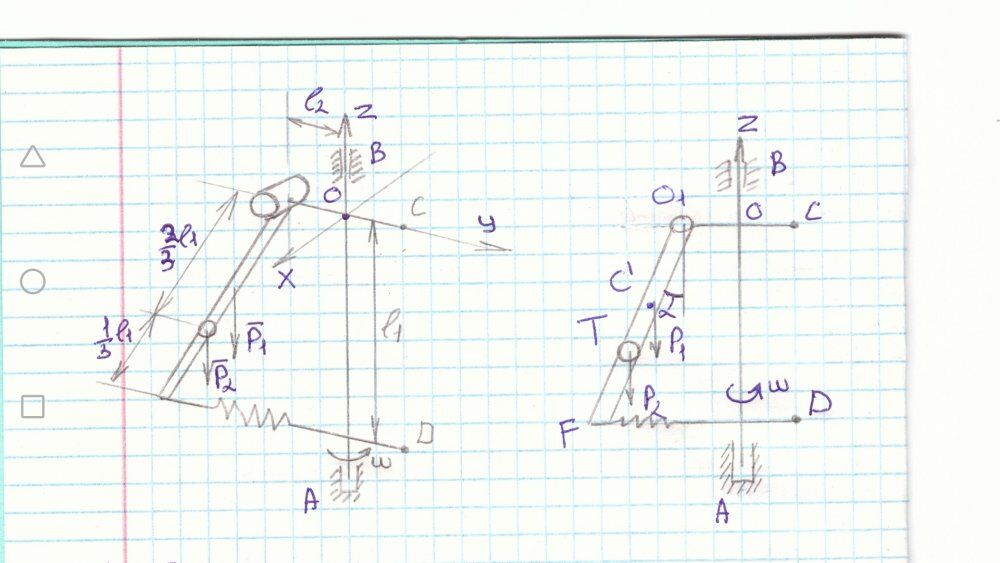 l₂
Z
B
O
C
y
X
2/3 l₁
1/3 l₁
P̄₁
P̄₂
l₁
D
ω
A
Z
B
O₁
O
C
C'
T
P₁
P₂
F
ω
D
A